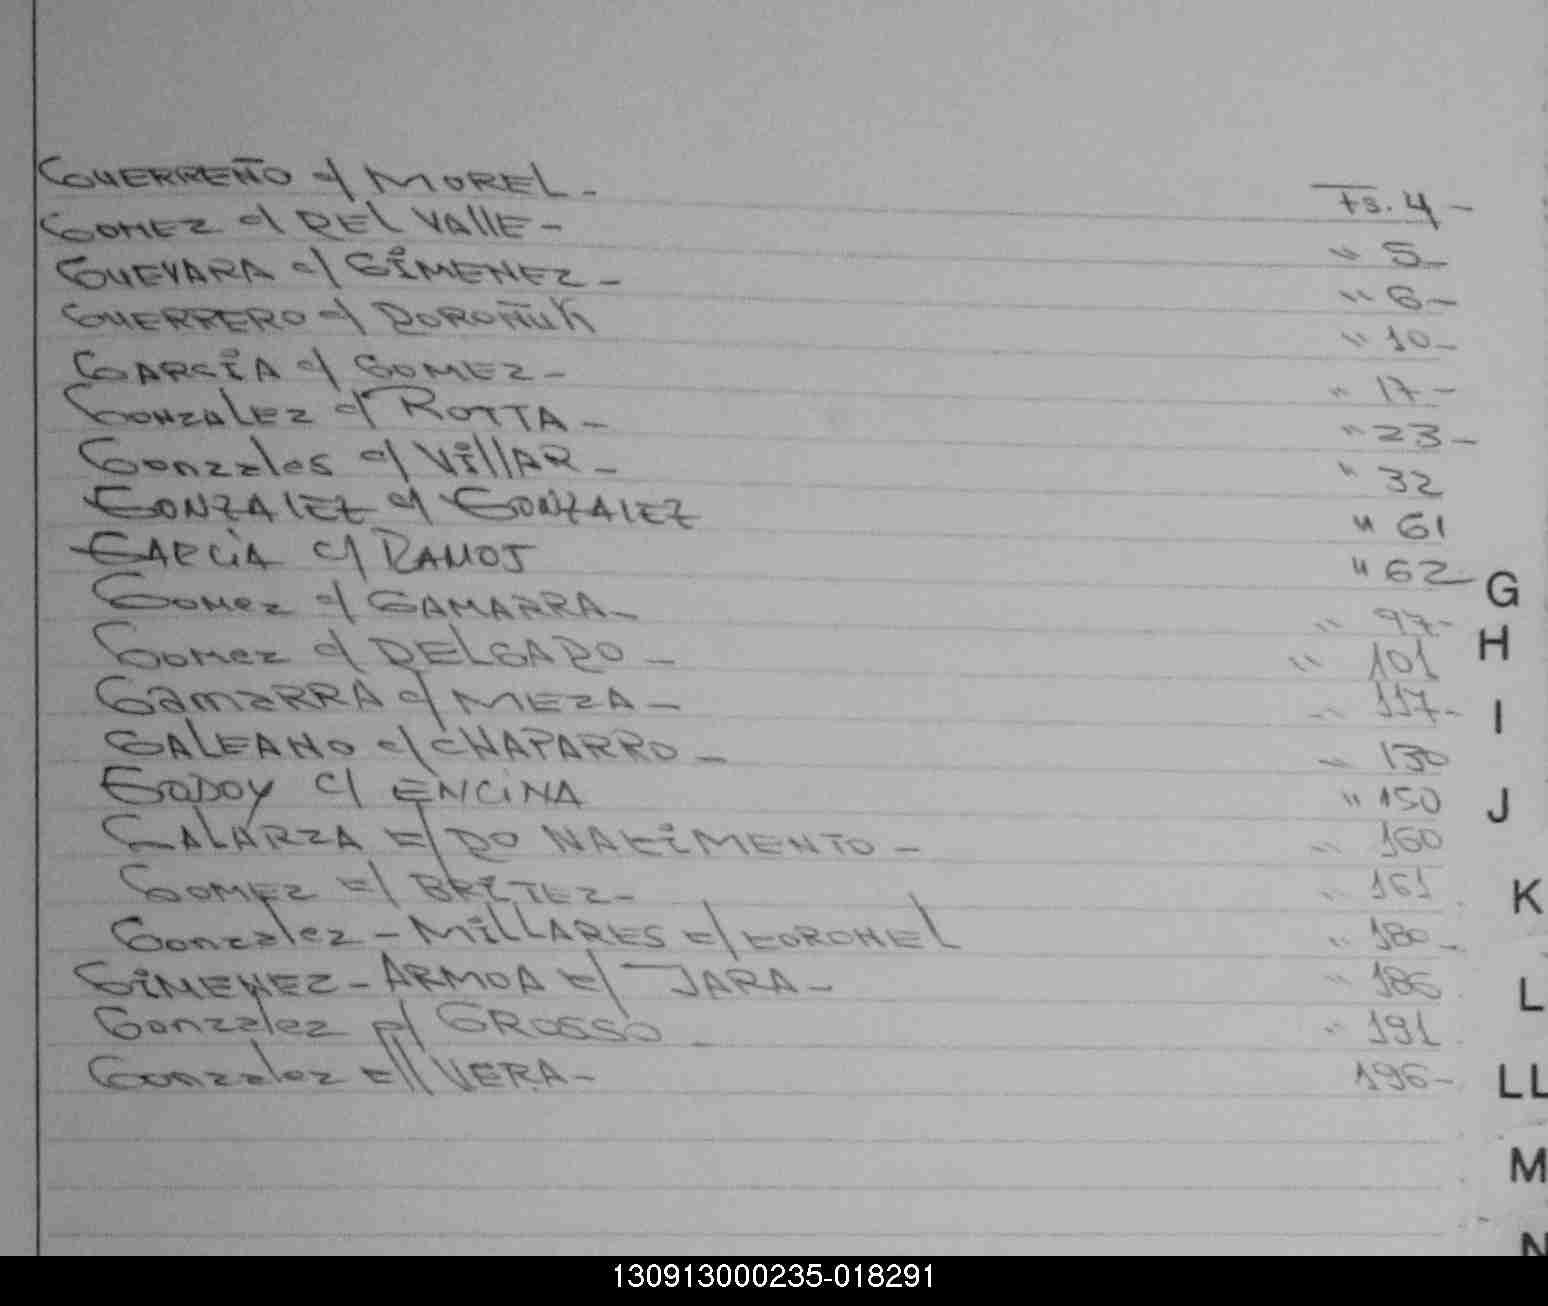 GUERREÑO c/ MOREL - Fs. 4 -
GOMEZ c/ DEL VALLE - " 5 -
GUEVARA c/ GIMENEZ - " 6 -
GUERRERO c/ DOROÑUK " 10 -
GARSIA c/ GOMEZ - " 17 -
GONZALEZ c/ ROTTA - " 23 -
Gonzales c/ VillAR - " 32
GONZALEZ c/ GONZALEZ " 61
GARCIA c/ RAMOS " 62
GOMez c/ GAMARRA - " 97 -
GOMez c/ DELGADO - " 101
GAMARRA c/ MEZA - " 117 -
GALEANO c/ CHAPARRO - " 130
GODOY c/ ENCINA " 150
GALARZA c/ DO NACIMENTO - " 160
GOMEZ c/ BRITEZ - " 161
Gonzalez - MILLARES c/ CORCHEL " 180 -
GIMENEZ - ARMOA c/ JARA - " 186
Gonzalez c/ GROSSO " 191
Gonzalez c/ VERA - 196 -
G
H
I
J
K
L
LL
M
N
130913000235-018291